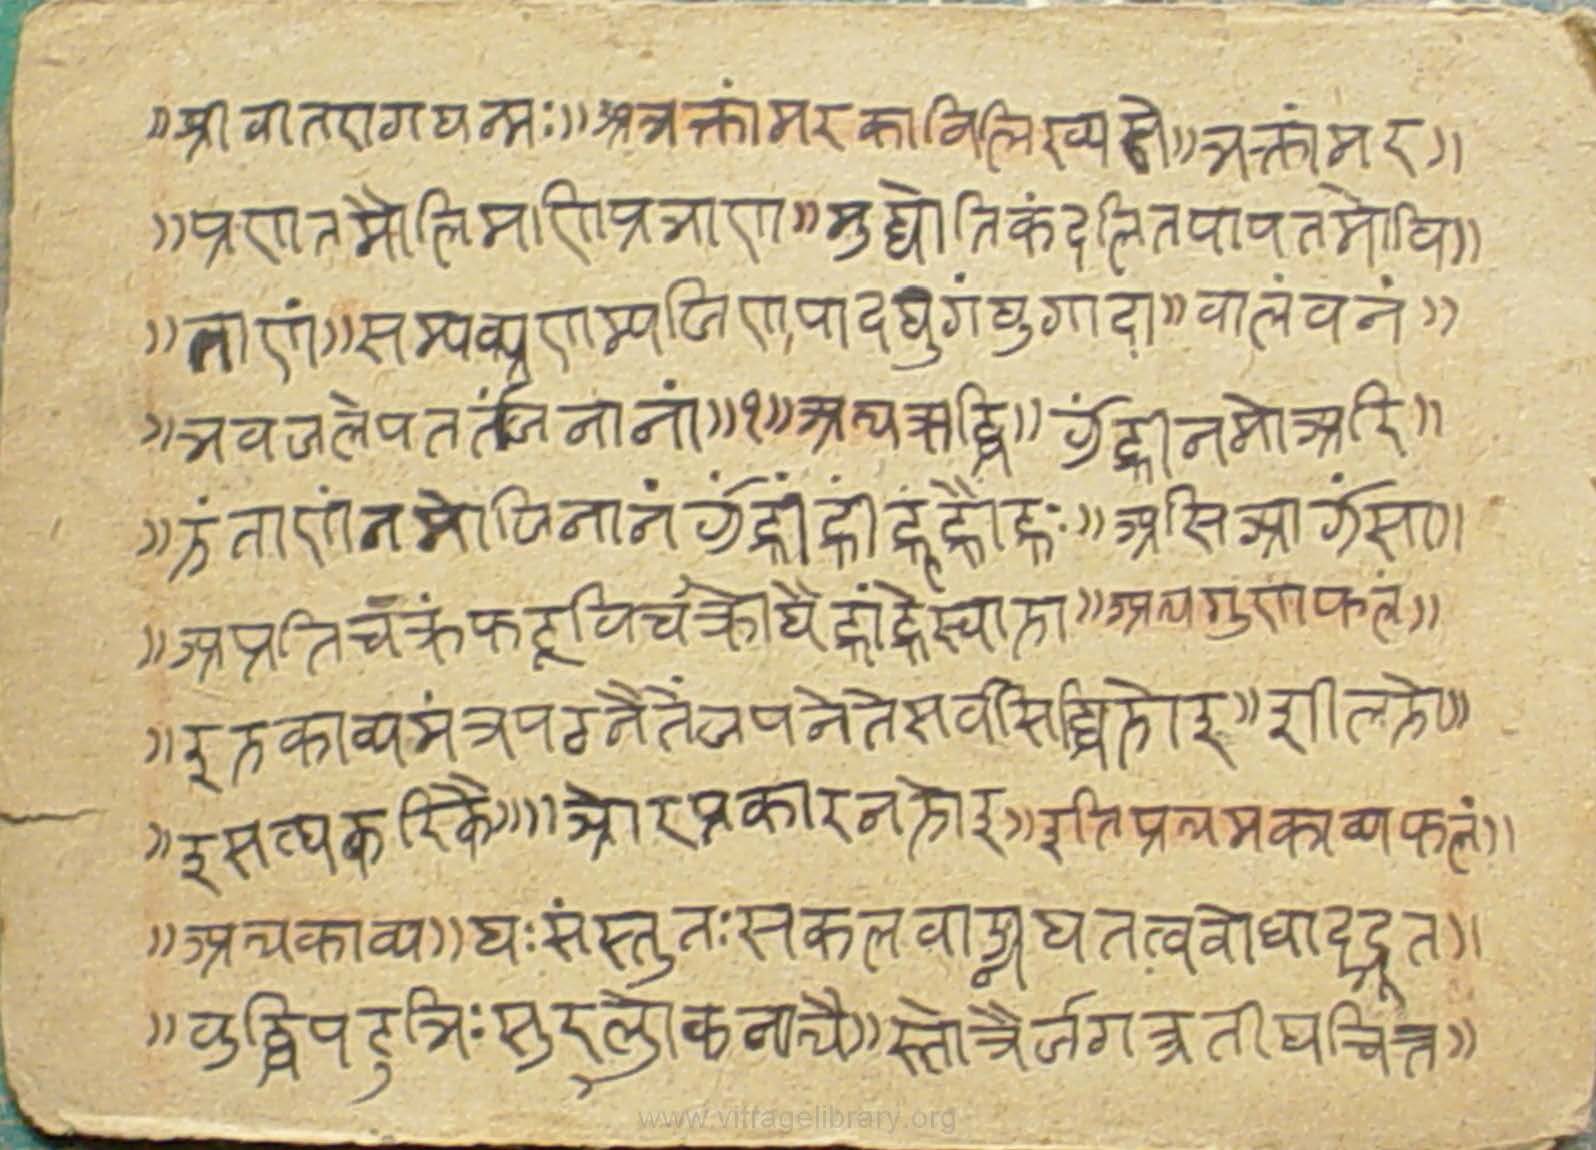 ॥श्री वीतरागय नमः॥अथ भक्तांमर काव्य लिख्यते॥भक्तांमर॥
॥प्रणतमौलिमणिप्रभाणा॥मुद्योतिकं दलितपापतमोवि॥
॥ताणं॥सम्यक्प्रणम्यजिणपादयुगंयुगादा॥वालंवनं॥
॥भवजलेपततांजनानां॥१॥अथ ऋद्धि॥ॐह्रीनमोअरि॥
॥हंताणंनमोजिनानंॐह्रांह्रींह्रूंह्रौंह्रः॥असिआॐसा॥
॥अप्रतिचक्रंफट्विचक्रो ह्रांह्रैस्वाहा॥अथगुणफलं॥
॥इहकाव्यमंत्रपठनैतेंजपनेतेसर्वसिद्धिहोइ॥शीलहो॥
॥इसत्यकरिकै॥॥ओरप्रकारनहोइ॥इतिप्रथमकाव्यफलं॥
॥अथकाव्य॥यःसंस्तुतःसकलवाङ्मयतत्ववोधादद्भूत॥
॥वुद्धिपटुभिःसुरलोकनाथै॥स्तोत्रैर्जगत्रतीयचित्त॥
www.vitragelibrary.org